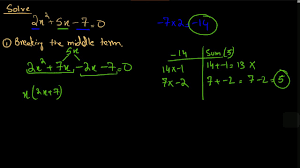 Solve
2x² + 5x - 7 = 0
① Breaking the middle term.
5x
2x² + 7x - 2x - 7 = 0
x(2x+7)
-7×2 = -14
-14 Sum(5)
14×-1 14+-1=13 ×
7×-2 7+-2 = 7-2=5